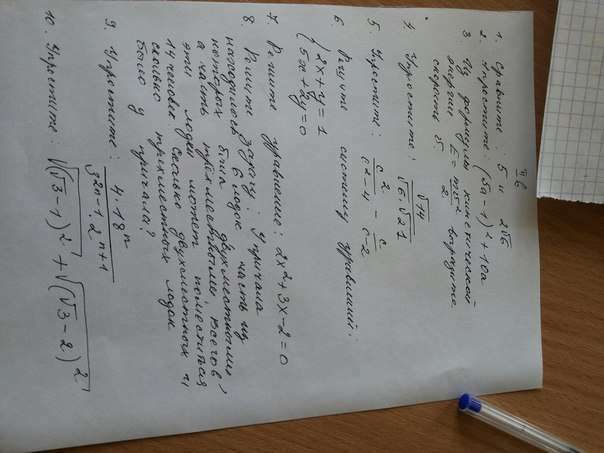 II в
1. Сравните: 5 и 2√6
2. Упростите: (5a-1)² + 10a
3 Из формулы кинетической
энергии E = mv²/2 выразите
скорость v.
4 Упростите: √14/(√6·√21)
5. Упростите: c²/(c²-4) - c/(c-2)
6 Решите систему уравнений:
{ 2x + y = 1
5x + 2y = 0
7. Решите уравнение: 2x² + 3x - 2 = 0
8 Решите задачу: У причала
находилось 6 лодок, часть из
которых была двухместными,
а часть трёхместными. Всего в
эти лодки может поместиться
14 человек. Сколько двухместных и
сколько трёхместных лодок
было у причала?
9. Упростите: 4·18ⁿ/(3²ⁿ⁻¹·2ⁿ⁺¹)
10. Упростите: √(√3-1)² + √(√3-2)²